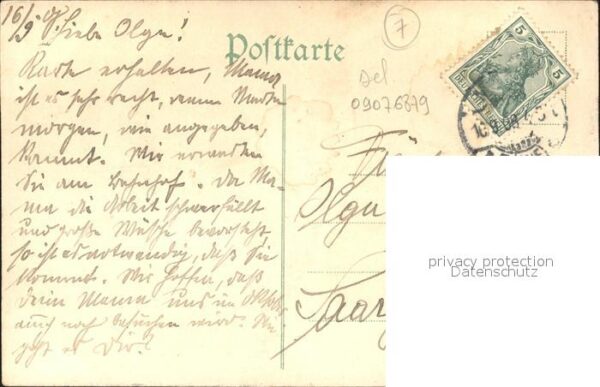 16/9
Liebe Olga!
Karte erhalten, Mama
ist es sehr recht, wenn
morgen, wie angegeben,
kommt. Wir erwarten
Sie am Bahnhof. Da Ma-
ma die Arbeit schwer fällt
und große Wäsche bevorsteht
so ist es notwendig, daß Sie
kommt. Wir hoffen, daß
Deine Mama uns im Oktober
auch noch besuchen wird. Wie
geht es Dir?
Postkarte
7
del
09076879
5 5
Olga
Saar
privacy protection
Datenschutz